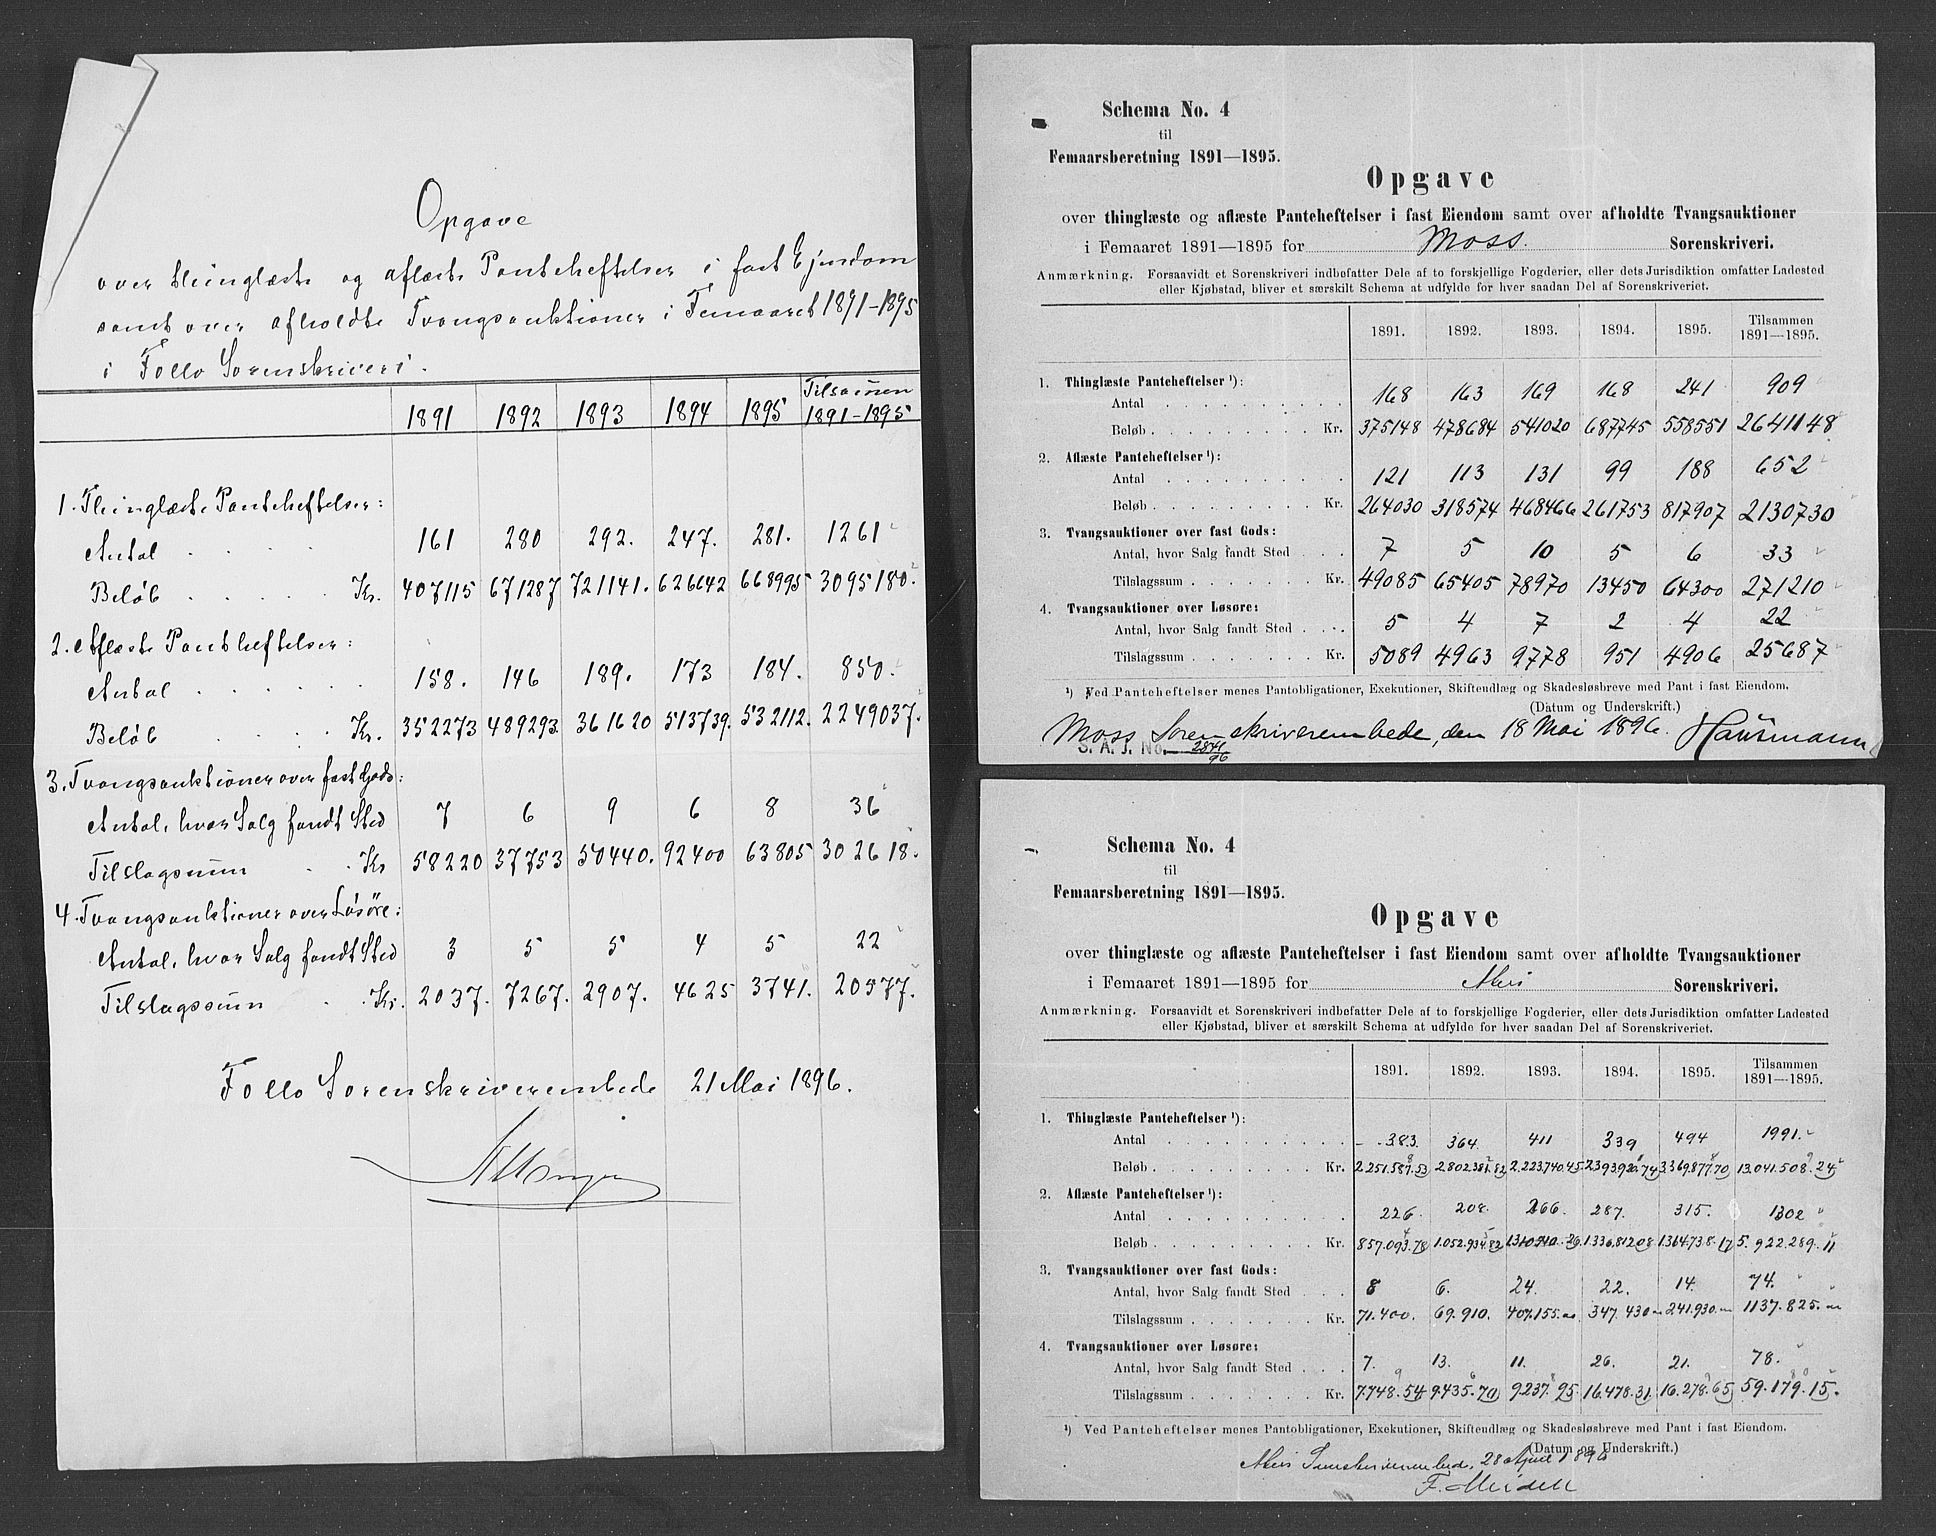 Opgave
over thinglæste og aflæste Panteheftelser i fast Ejendom
samt over afholdte Tvangsauktioner i Femaaret 1891-1895
i Follo Sorenskriveri.
1891 1892 1893 1894 1895 Tilsammen 1891-1895
1. Thinglæste Panteheftelser:
Antal . . . . 161 280 292. 247. 281. 1261
Beløb . . . . . Kr. 407115 671287 721141. 626642 668995 3095180.
2. Aflæste Pantheftelser:
Antal . . . . . . 158. 146 189. 173 184. 850.
Beløb . . . . Kr. 352273 489293. 361620 513739. 532112. 2249037.
3. Tvangsauktioner over fast Gods:
Antal, hvor Salg fandt Sted 7 6 9 6 8 36
Tilslagssum . . Kr 58220 37753 50440. 92400 63805 302618.
4. Tvangsauktioner over Løsøre:
Antal, hvor Salg fandt Sted 3 5 5 4 5 22
Tilslagssum . . Kr. 2037. 7267. 2907. 4625 3741. 20577.
Follo Sorenskriverembede 21 Mai 1896.
Schema No. 4
til
Femaarsberetning 1891—1895.
Opgave
over thinglæste og aflæste Panteheftelser i fast Eiendom samt over afholdte Tvangsauktioner
i Femaaret 1891—1895 for Moss. Sorenskriveri.
Anmærkning. Forsaavidt et Sorenskriveri indbefatter Dele af to forskjellige Fogderier, eller dets Jurisdiktion omfatter Ladested
eller Kjøbstad, bliver et særskilt Schema at udfylde for hver saadan Del af Sorenskriveriet.
1891. 1892. 1893. 1894. 1895. Tilsammen 1891—1895.
1. Thinglæste Panteheftelser ¹):
Antal . . . . . . . . . . 168 163 169 168 241 909
Beløb . . . . . . . . . Kr. 375148 478684 541020 687745 558551 2641148
2. Aflæste Panteheftelser ¹):
Antal . . . . . . . . . . 121 113 131 99 188 652
Beløb . . . . . . . . . Kr. 264030 318574 468466 261753 817907 2130730
3. Tvangsauktioner over fast Gods:
Antal, hvor Salg fandt Sted . . . 7 5 10 5 6 33
Tilslagssum . . . . . . . Kr. 49085 65405 78970 13450 64300 271210
4. Tvangsauktioner over Løsøre:
Antal, hvor Salg fandt Sted . . . 5 4 7 2 4 22
Tilslagssum . . . . . . . Kr. 5089 4963 9778 951 4906 25687
¹) Ved Panteheftelser menes Pantobligationer, Exekutioner, Skiftendlæg og Skadesløsbreve med Pant i fast Eiendom.
(Datum og Underskrift.)
Moss Sorenskriverembede, den 18 Mai 1896. Hausmann
S. A. J. No. 2841/96
Schema No. 4
til
Femaarsberetning 1891—1895.
Opgave
over thinglæste og aflæste Panteheftelser i fast Eiendom samt over afholdte Tvangsauktioner
i Femaaret 1891—1895 for Aker Sorenskriveri.
Anmærkning. Forsaavidt et Sorenskriveri indbefatter Dele af to forskjellige Fogderier, eller dets Jurisdiktion omfatter Ladested
eller Kjøbstad, bliver et særskilt Schema at udfylde for hver saadan Del af Sorenskriveriet.
1891. 1892. 1893. 1894. 1895. Tilsammen 1891—1895.
1. Thinglæste Panteheftelser ¹):
Antal . . . . . . . . . . 383. 364. 411 339 494 1991.
Beløb . . . . . . . . . Kr. 2.223.740.45 13.041.508.24
2. Aflæste Panteheftelser ¹):
Antal . . . . . . . . . . 226. 208. 266. 287. 315. 1302
Beløb . . . . . . . . . Kr. 857.093.78 1.052.934.82 1.336.812.08 1.364.738.17 5.922.289.11
3. Tvangsauktioner over fast Gods:
Antal, hvor Salg fandt Sted . . . 8 6. 24. 22. 14. 74.
Tilslagssum . . . . . . . Kr. 71.400. 69.910. 407.155. 347.430 241.930. 1137.825.
4. Tvangsauktioner over Løsøre:
Antal, hvor Salg fandt Sted . . . 7. 13. 11. 26. 21. 78.
Tilslagssum . . . . . . . Kr. 7.748.54 9.435.70 9.237.95 16.478.31 16.278.65 59.179.15.
¹) Ved Panteheftelser menes Pantobligationer, Exekutioner, Skiftendlæg og Skadesløsbreve med Pant i fast Eiendom.
(Datum og Underskrift.)
Aker Sorenskriverembede, 28 April 1896
F. Meidell